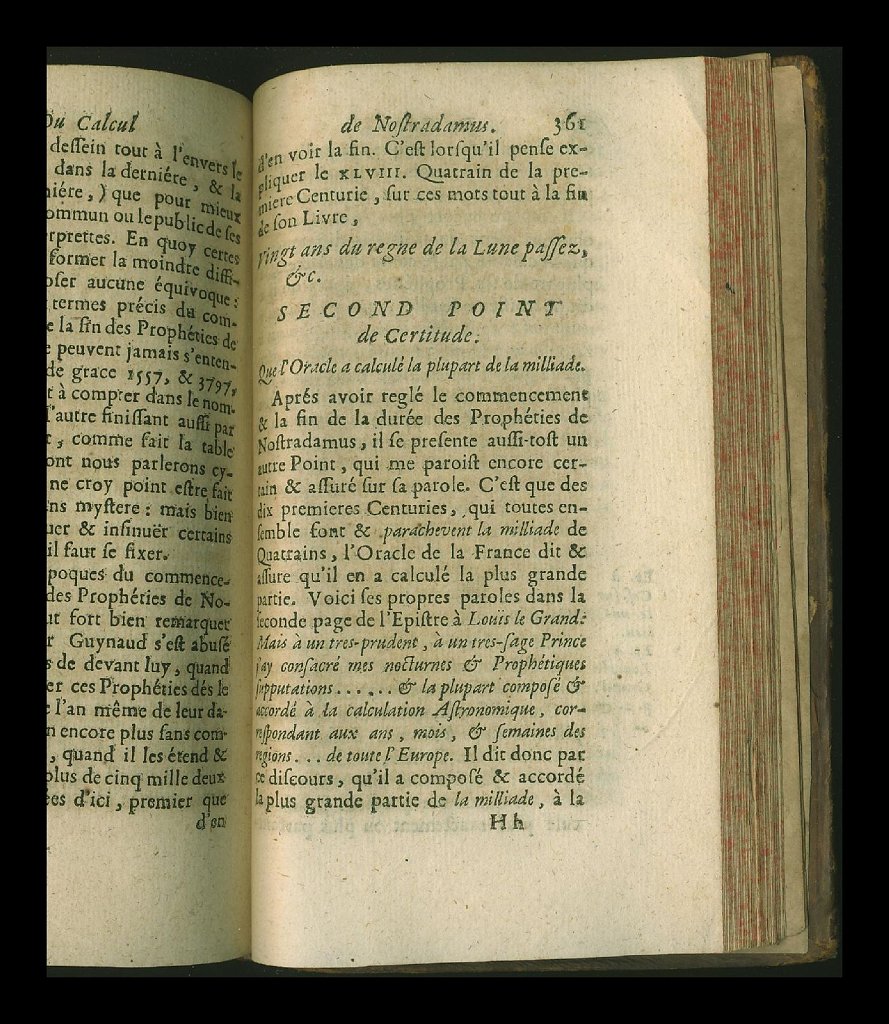 Du Calcul
dessein tout à l'envers le
dans la derniére, & la
niére, ) que pour mieux
ommun ou le public de ses
rprettes. En quoy certes
former la moindre diffi-
oser aucune équivoque:
termes précis du com-
e la fin des Prophéties de
e peuvent jamais s'enten-
de grace 1557, & 3797,
t à compter dans le nom-
l'autre finissant aussi par
t, comme fait la table
ont nous parlerons cy-
ne croy point estre fait
ns mystere: mais bien
uer & insinuër certains
il faut se fixer.
poques du commence-
des Prophéties de No-
ut fort bien remarquer
r Guynaud s'est abusé
s de devant luy, quand
er ces Prophéties dés le
e l'an même de leur da-
n encore plus sans com-
, quand il les étend &
plus de cinq mille deux
ées d'ici, premier que
d'en
de Nostradamus. 361
d'en voir la fin. C'est lorsqu'il pense ex-
pliquer le XLVIII. Quatrain de la pre-
miere Centurie, sur ces mots tout à la fin
de son Livre,
Vingt ans du regne de la Lune passez,
&c.
SECOND POINT
de Certitude:
Que l'Oracle a calculé la plupart de la milliade.
Aprés avoir reglé le commencement
& la fin de la durée des Prophéties de
Nostradamus, il se presente aussi-tost un
autre Point, qui me paroist encore cer-
tain & assuré sur sa parole. C'est que des
dix premieres Centuries, qui toutes en-
semble font & parachevent la milliade de
Quatrains, l'Oracle de la France dit &
assure qu'il en a calculé la plus grande
partie. Voici ses propres paroles dans la
seconde page de l'Epistre à Louïs le Grand:
Mais à un tres-prudent, à un tres-sage Prince
j'ay consacré mes nocturnes & Prophétiques
supputations...... & la plupart composé &
accordé à la calculation Astronomique, cor-
respondant aux ans, mois, & semaines des
regions... de toute l'Europe. Il dit donc par
ce discours, qu'il a composé & accordé
la plus grande partie de la milliade, à la
Hh